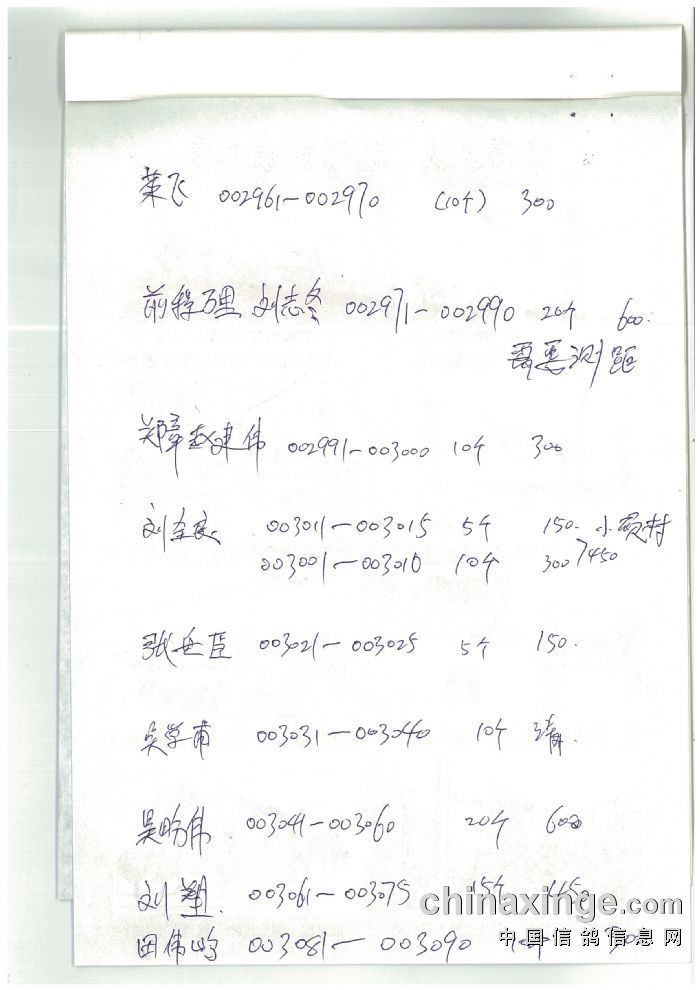 荣飞 002961-002970 (10个) 300
前程万里 刘志冬 002971-002990 20个 600.
需要测距
郑章赵建伟 002991-003000 10个 300
刘全良 003011-003015 5个 150. 小贾村
003001-003010 10个 300 >450
张岳臣 003021-003025 5个 150.
吴学甫 003031-003040 10个 清.
吴 伟 003041-003060 20个 600
刘塑. 003061-003075 15个 450
chinaxinge.com
田伟 003081- 003090 10个 300
中国信鸽信息网